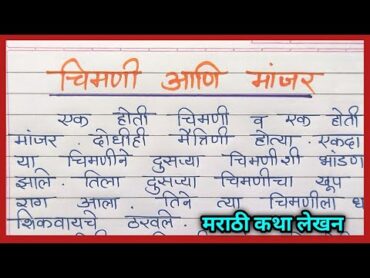 चिमणी आणि मांजर
एक होती चिमणी व एक होती
मांजर. दोघीही मैत्रिणी होत्या. एकदा
या चिमणीने दुसऱ्या चिमणीशी भांडण
झाले. तिला दुसऱ्या चिमणीचा खूप
राग आला. तिने त्या चिमणीला ध
शिकवायचे ठरवले.
मराठी कथा लेखन